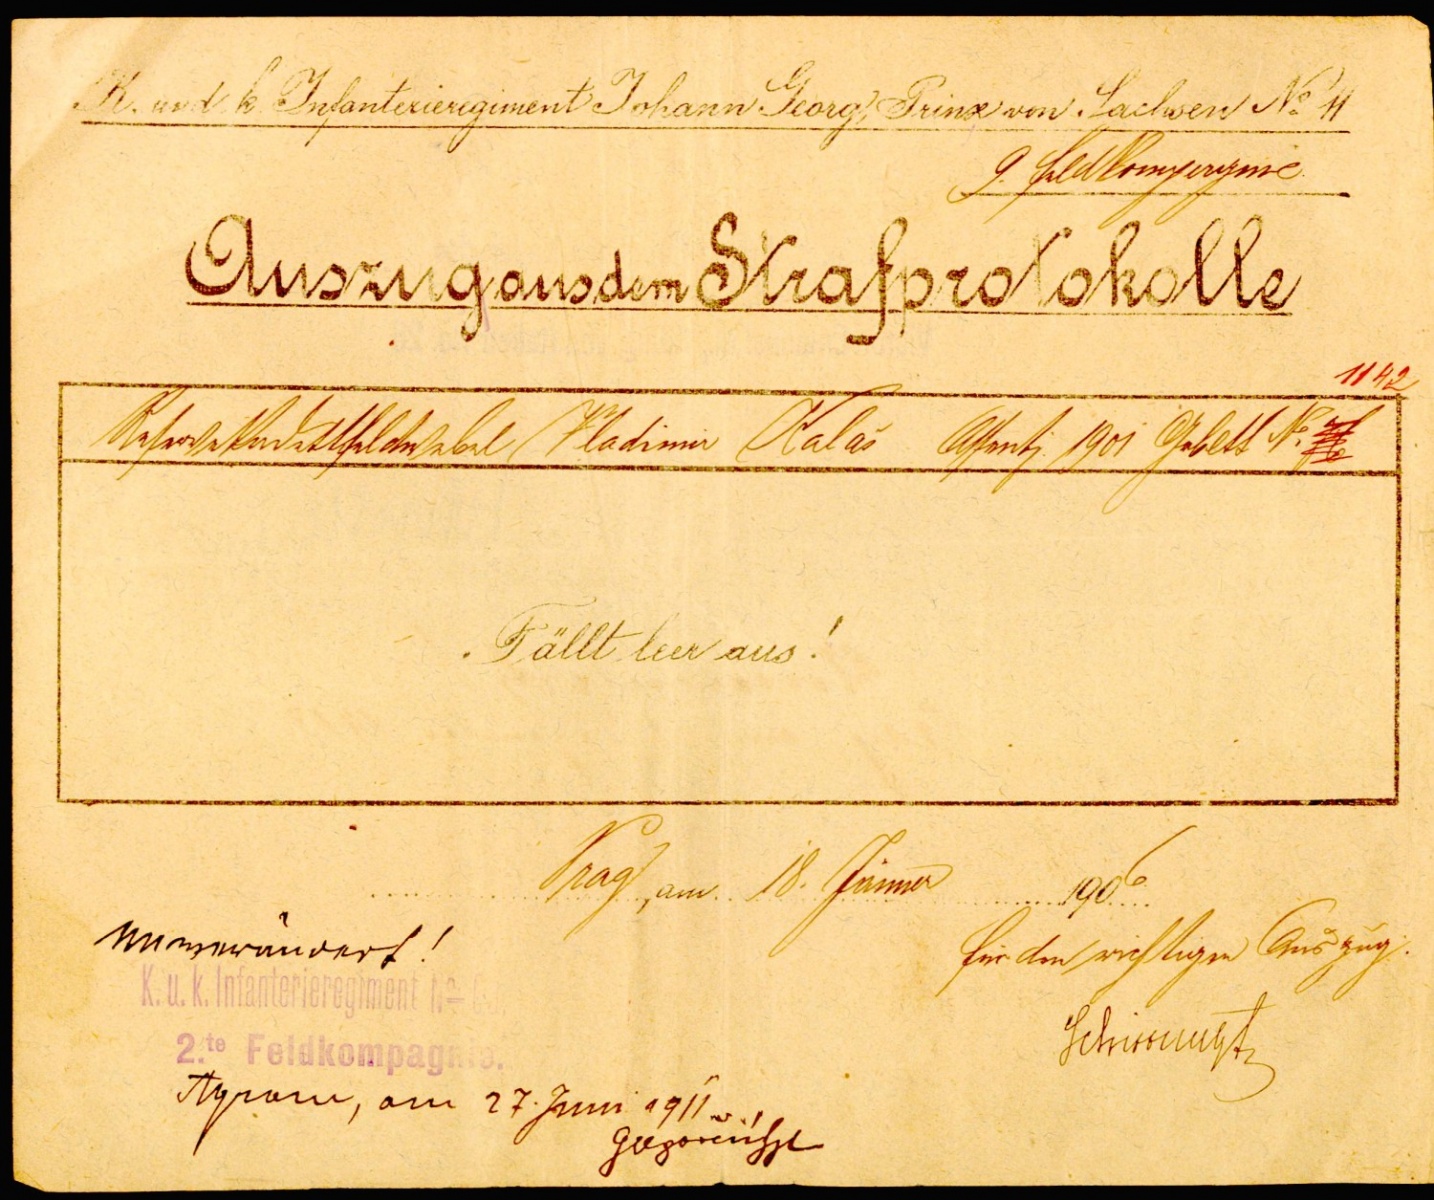 K. und k. Infanterieregiment Johann Georg, Prinz von Sachsen No 11
9. Feldkompagnie
Auszug aus dem Strafprotokolle
1142
Reservekadettfeldwebel Vladimir Kalaš Assentj. 1901 Grbbltt No
Fällt leer aus!
Prag, am 18. Jänner 1906
Unverändert!
für den richtigen Auszug:
K. u. k. Infanterieregiment No
2.te Feldkompagnie.
Agram, am 27. Juni 1911